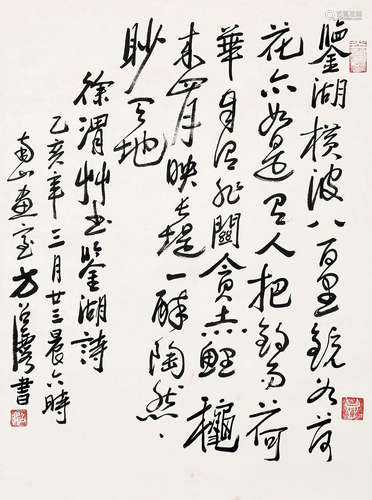 鑒湖橫波八百里鏡
花亦如是人把釣荷
華非關貪赤鯉
來四月映長堤一醉陶然
眇天地
徐渭艸書鑒湖詩
乙亥年三月廿三晨六時
南山畫室方召麐書